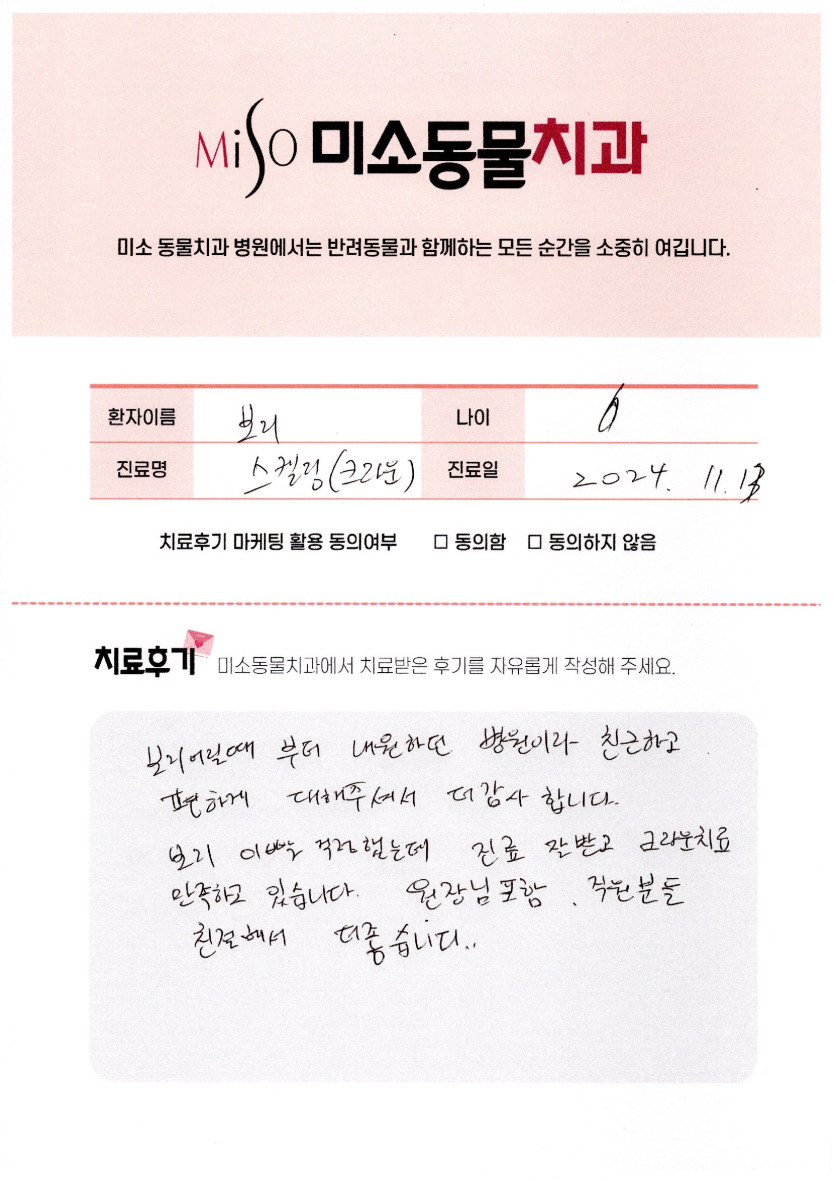 MiSO 미소동물치과
미소 동물치과 병원에서는 반려동물과 함께하는 모든 순간을 소중히 여깁니다.
환자이름 보리 나이 6
진료명 스켈링(크라운) 진료일 2024. 11. 13
치료후기 마케팅 활용 동의여부 □ 동의함 □ 동의하지 않음
치료후기 미소동물치과에서 치료받은 후기를 자유롭게 작성해 주세요.
보리어릴때 부터 내원하던 병원이라 친근하고
편하게 대해주셔서 더감사 합니다.
보리 이빨 걱정했는데 진료 잘받고 크라운치료
만족하고 있습니다. 원장님포함, 직원분들
친절해서 더좋습니다..